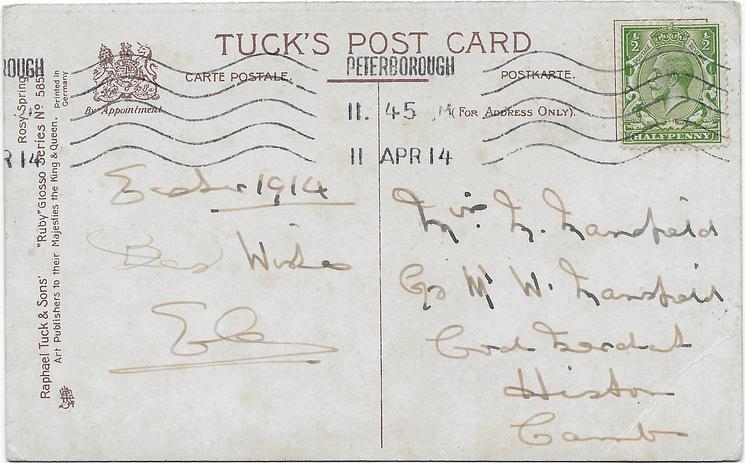 TUCK'S POST CARD
CARTE POSTALE.
POSTKARTE.
(FOR ADDRESS ONLY).
By Appointment
½ ½
HALFPENNY
ROUGH
R 14
PETERBOROUGH
11. 45 M
11 APR 14
Raphael Tuck & Sons' "Ruby" Glosso Series Nº 585
Rosy Spring
Art Publishers to their Majesties the King & Queen.
Printed in
Germany
Easter 1914
Best Wishes
Miss M. Mansfield
C/o Mr W. Mansfield
Histon
Camb